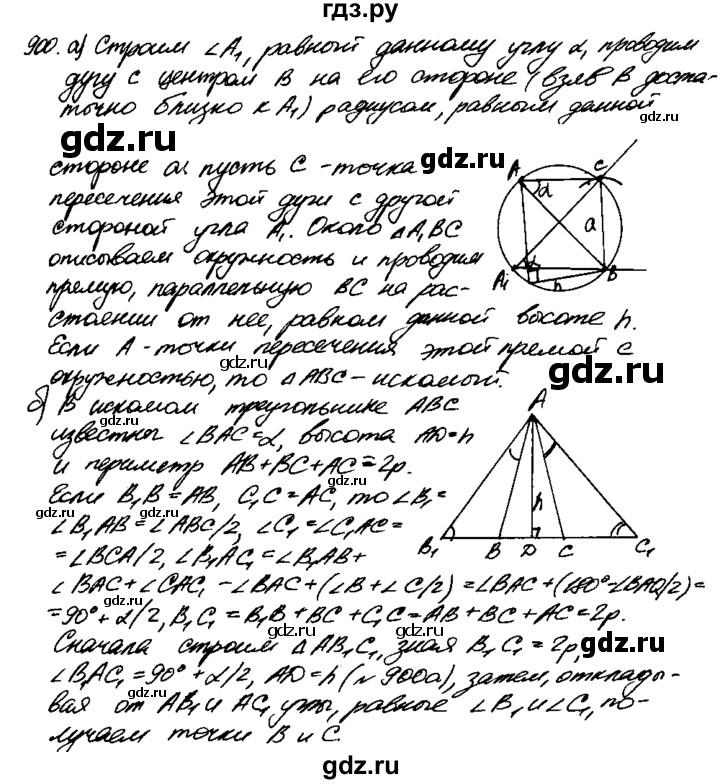 гдз.ру
900. а) Строим ∠A₁, равный данному углу α, проводим
дугу с центром B на его стороне (взяв B доста-
точно близко к A₁) радиусом, равным данной
gdz.ru
gdz.ru
стороне a. пусть C - точка
gdz.ru
пересечения этой дуги с другой
стороной угла A₁. Около △A₁BC
описываем окружность и проводим
прямую, параллельную BC на рас-
стоянии от нее, равном данной высоте h.
Если A - точки пересечения этой прямой с
окружностью, то △ABC - искомый.
gdz.ru
gdz.ru
A
C
α
a
A₁
α
h
B
б) В искомом треугольнике ABC
известны ∠BAC = α, высота AD = h
и периметр AB + BC + AC = 2p.
Если B₁B = AB, C₁C = AC, то ∠B₁ =
gdz.ru
gdz.ru
∠B₁AB = ∠ABC/2, ∠C₁ = ∠C₁AC =
= ∠BCA/2, ∠B₁AC₁ = ∠B₁AB +
∠BAC + ∠CAC₁ - ∠BAC + (∠B + ∠C/2) = ∠BAC + (180° - ∠BAC)/2) =
= 90° + α/2, B₁C₁ = B₁B + BC + C₁C = AB + BC + AC = 2p.
gdz.ru
gdz.ru
Сначала строим △AB₁C₁, зная B₁C₁ = 2p,
∠B₁AC₁ = 90° + α/2, AD = h (№ 900а), затем, отклады-
вая от AB₁ и AC₁ углы, равные ∠B₁ и ∠C₁, по-
лучаем точки B и C.
gdz.ru
gdz.ru
A
h
B₁
B
D
C
C₁
gdz.ru